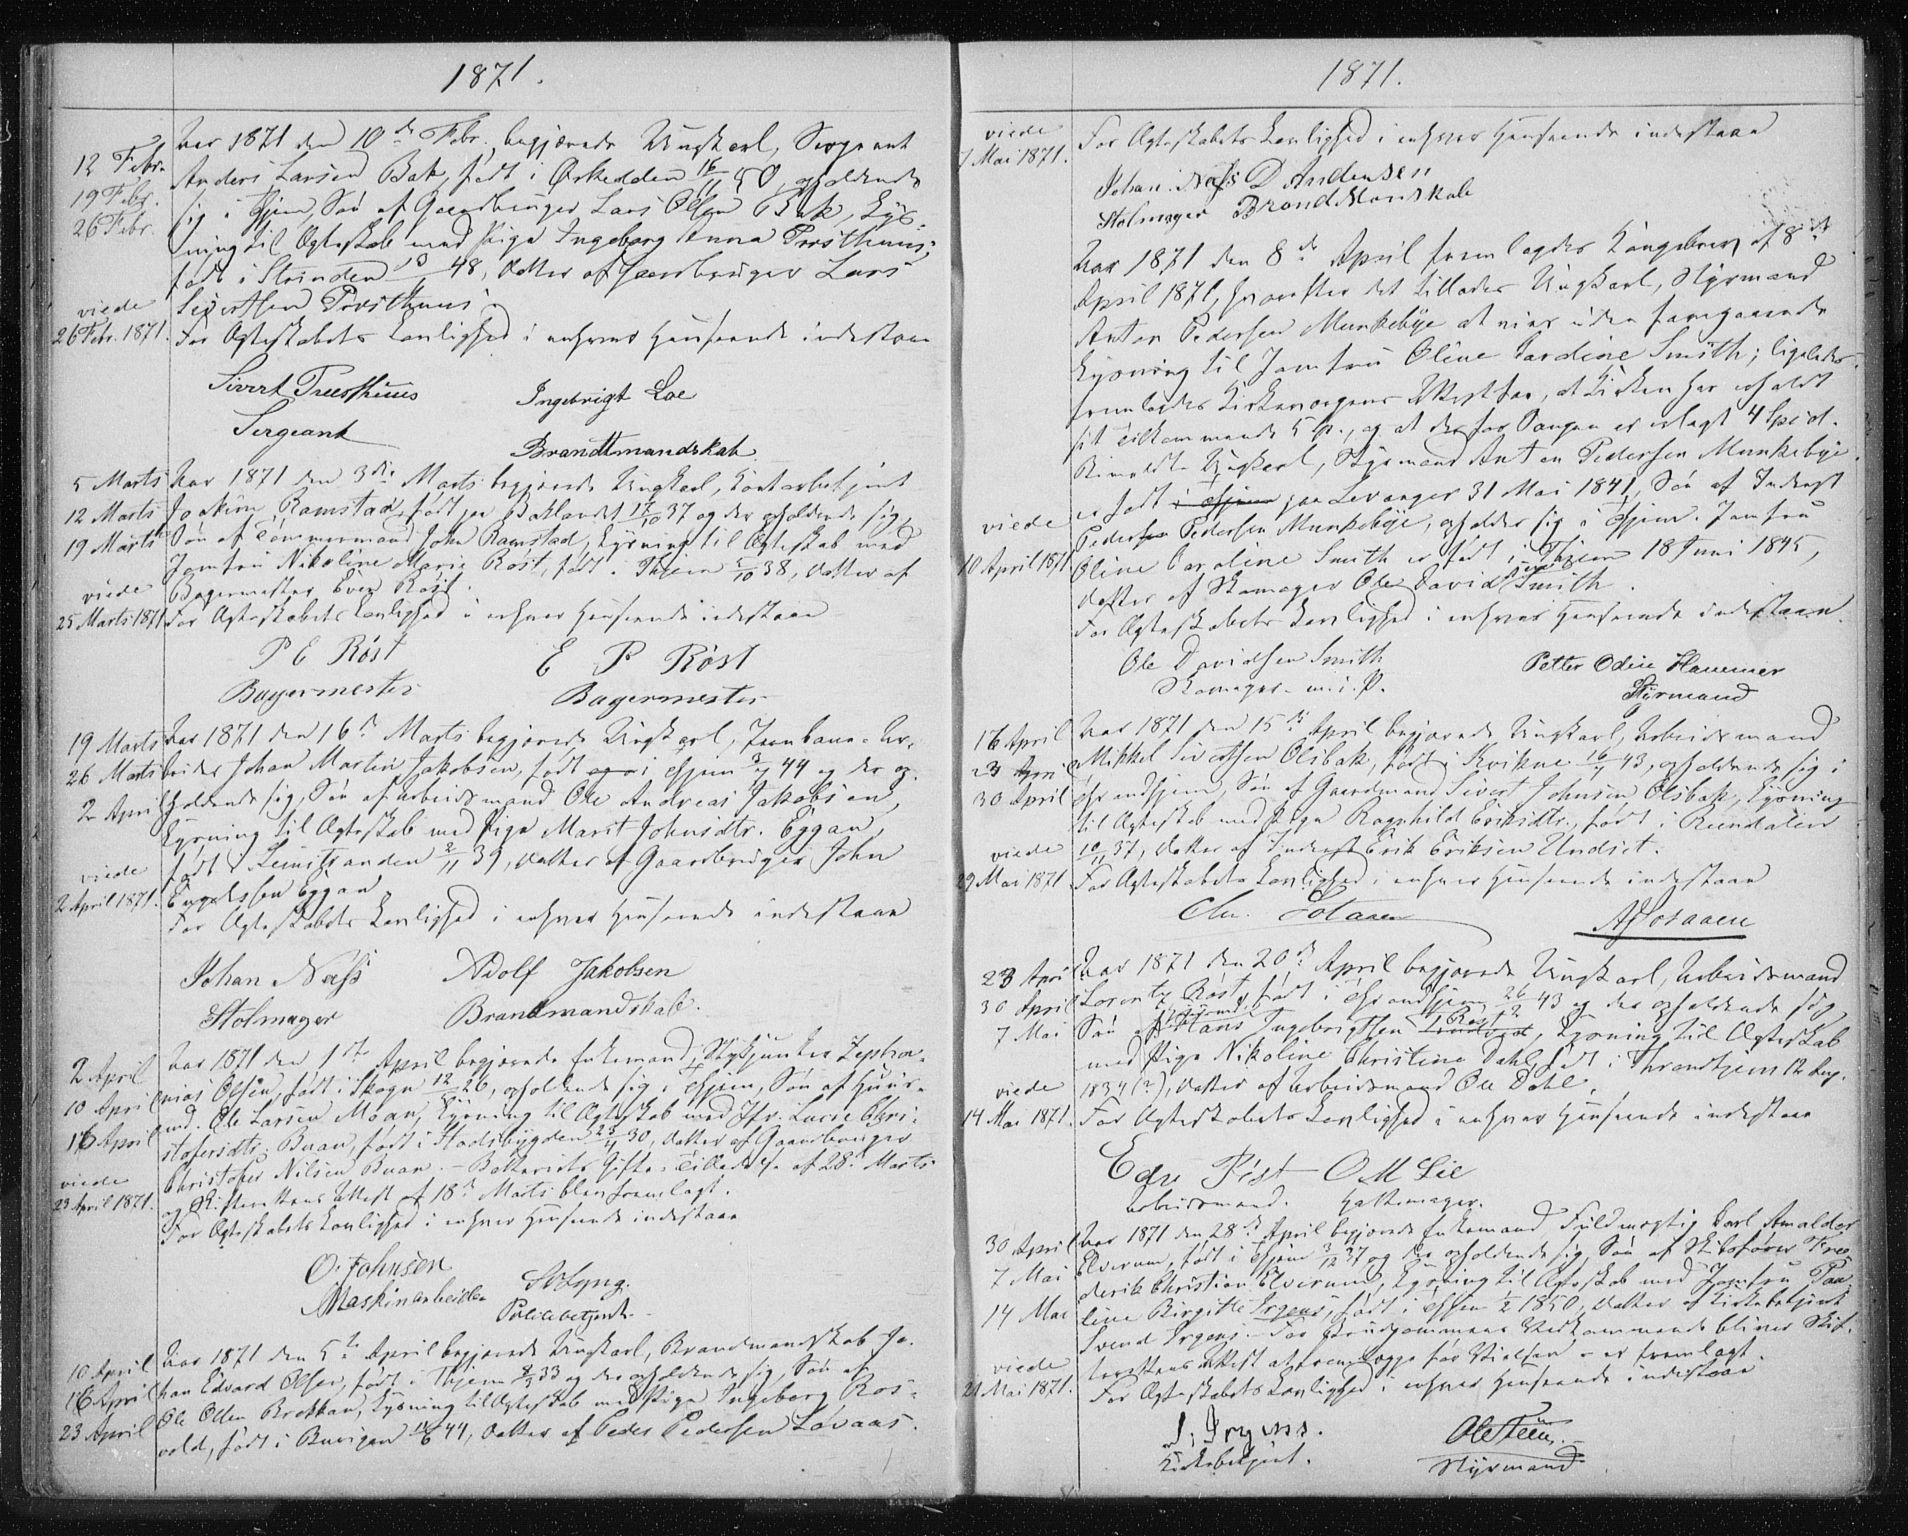 1871.
12 Febr.
19 Febr.
26 Febr.
Aar 1871 den 10de Febr. begjærede Ungkarl, Sergeant
Anders Larsen Bak, født i Ørkedalen 50, opholdende
sig i Thjem, Søn af Gaardbruger Lars Olsen Bak, Lys-
ning til Ægteskab med Pige Ingeborg Anna Presthuus,
født i Strinden 48, Datter af Gaardbruger Lars
Sivertsen Presthuus.
viede
26 Febr. 1871.
For Ægteskabets Lovlighed i enhver Henseende indestaae
Sivert Preesthuus
Sergeant
Ingebrigt Loe
Brandtmandskab
5 Marts
12 Marts
19 Marts
Aar 1871 den 3die Marts begjærede Ungkarl, Contorbetjent
Joakim Ramstad, født paa Baklandet 17/10 37 og der opholdende sig,
Søn af Tømmermand John Ramstad, Lysning til Ægteskab med
Jomfru Nikoline Marie Røst, født i Thjem 5/10 38, Datter af
Bagermester Even Røst.
viede
25 Marts 1871
For Ægteskabets Lovlighed i enhver Henseende indestaae
P E Røst
Bagermester
E P Røst
Bagermester
19 Marts
26 Marts
2 April
Aar 1871 den 16de Marts begjærede Ungkarl, Jernbane-Ar-
beider Johan Martin Jakobsen, født og i Thjem 44 og der op-
holdende sig, Søn af Arbeidsmand Ole Andreas Jakobsen,
Lysning til Ægteskab med Pige Marit Johnsdtr. Eggan,
født i Leinstranden 2/11 39, Datter af Gaardbruger John
Eggan.
viede
2 April 1871.
For Ægteskabets Lovlighed i enhver Henseende indestaae
Johan Næss
Stolmager
Adolf Jakobsen
Brandmandskab.
2 April
10 April
16 April
Aar 1871 den 1ste April begjærede Enkemand, Stykjunker Zepha-
nias Olsen, født i Skogn 12/ 26, opholdende sig i Thjem, Søn af Huus-
md. Ole Larsen Moan, Lysning til Ægteskab med Jfr. Lucie Chri-
stofersdtr. Buan, født i Stadsbygden 30, Datter af Gaardbruger
Christofer Nilsen Buan. - Batteriets Gifte-Tilladelse af 28de Marts
og Skifterettens Attest af 18de Marts blev fremlagt.
viede
23 April 1871.
For Ægteskabets Lovlighed i enhver Henseende indestaae
O. Johnsen
Maskinarbeider
Lyng.
Politibetjent.
10 April
16 April
23 April
Aar 1871 den 5te April begjærede Ungkarl, Brandmandskab Jo-
han Edvard Olsen, født i Thjem 33 og der opholdende sig, Søn af
Ole Olsen Brekkan, Lysning til Ægteskab med Pige Ingeborg Ros-
vold, født i Buvigen 44, Datter af Peder Pedersen Løvaas.
1871.
viede
7 Mai 1871.
For Ægteskabets Lovlighed i enhver Henseende indestaae
Johan Næss
Stolmager
D Andersen
Brandmandskab
Aar 1871 den 8de April fremlagdes Kongebrev af 8de
April 1871, hvorefter det tillades Ungkarl, Styrmand
Anton Pedersen Munkebye at vies uden foregaaende
Lysning til Jomfru Oline Cardine Smith; ligeledes
fremlagdes Kirkeværgens Attest for, at Kirken har erholdt
sit tilkommende 5 , og at der for Vangen er erlagt 4 Spd.
Ungkarl, Styrmand Anton Pedersen Munkebye
er født i Thjem paa Levanger 31 Mai 1841, Søn af Inderst
Pedersen Pedersen Munkebye, opholder sig i Thjem. Jomfru
Oline Caroline Smith er født i Thjem 18 Juni 1845,
Datter af Skomager Ole Davidsen Smith.
viede
10 April 1871
For Ægteskabets Lovlighed i enhver Henseende indestaae.
Ole Davidsen Smith
Skomager m. i. P.
Petter Odin Hammer
Styrmand
16 April
23 April
30 April
Aar 1871 den 15de April begjærede Ungkarl, Arbeidsmand
Mikkel Sivertsen Olsbak, født i Kvikne 16/ 43, opholdende sig i
Throndhjem, Søn af Gaardmand Sivert Johnsen Olsbak, Lysning
til Ægteskab med Pige Ragnhild Eriksdtr., født i Rendalen
10/11 37, Datter af Inderst Erik Eriksen Undset.
viede
29 Mai 1871
For Ægteskabets Lovlighed i enhver Henseende indestaae
Chr. Sotaaen
A Sotaaen
23 April
30 April
7 Mai
Aar 1871 den 20de April begjærede Ungkarl, Arbeidsmand
Lorentz Røst, født i Throndhjem 26/2 43 og der opholdende sig,
Søn af Hans Ingebrigtsen Røst, Lysning til Ægteskab
med Pige Nikoline Christine Dahl, født i Throndhjem 12 Aug.
1834 (?), Datter af Arbeidsmand Ole Dahl.
viede
14 Mai 1871.
For Ægteskabets Lovlighed i enhver Henseende indestaae
Røst
Arbeidsmand.
O M Lie
Hattemager.
30 April
7 Mai
14 Mai
Aar 1871 den 28de April begjærede Enkemand Fuldmægtig Carl Amaldus
Elverum, født i Thjem 3/12 37 og der opholdende sig, Søn af Skibsfører Fre-
derik Christian Elverum, Lysning til Ægteskab med Jomfru Pau-
line Birgitte Irgens, født i Thjem 1/2 1850, Datter af Kirkebetjent
Svend Irgens. - For Brudgommens Vedkommende bliver Skif-
terettens Attest at fremlægge før Vielsen - er fremlagt.
viede
21 Mai 1871.
For Ægteskabets Lovlighed i enhver Henseende indestaae
S. Irgens.
Kirkebetjent.
Ole Steen.
Styrmand